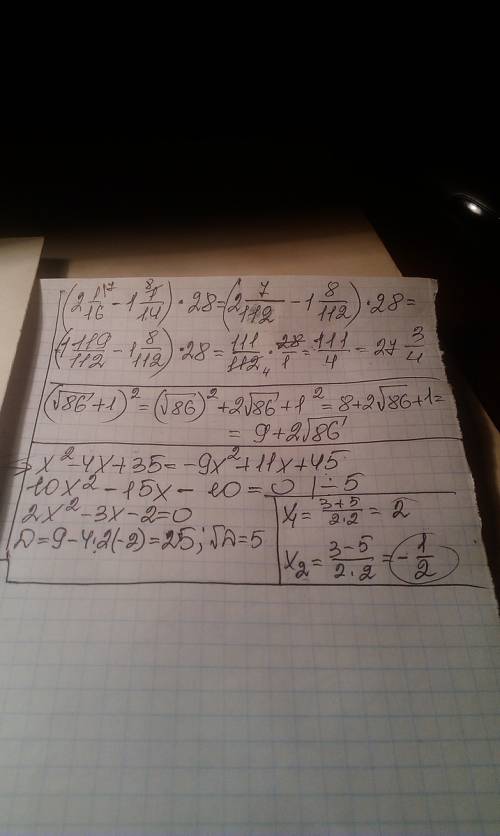 (2 1/16 ⁷ - 1 1/14 ⁸) · 28 = (2 7/112 - 1 8/112) · 28 =
(1 119/112 - 1 8/112) · 28 = 111/112 ₄ · 28/1 = 111/4 = 27 3/4
(√86 + 1)² = (√86)² + 2√86 + 1² = 8 + 2√86 + 1 =
= 9 + 2√86
x² - 4x + 35 = -9x² + 11x + 45
10x² - 15x - 10 = 0 | ÷ 5
2x² - 3x - 2 = 0
D = 9 - 4·2(-2) = 25; √D = 5
x₁ = (3+5)/(2·2) = 2
x₂ = (3-5)/(2·2) = -1/2